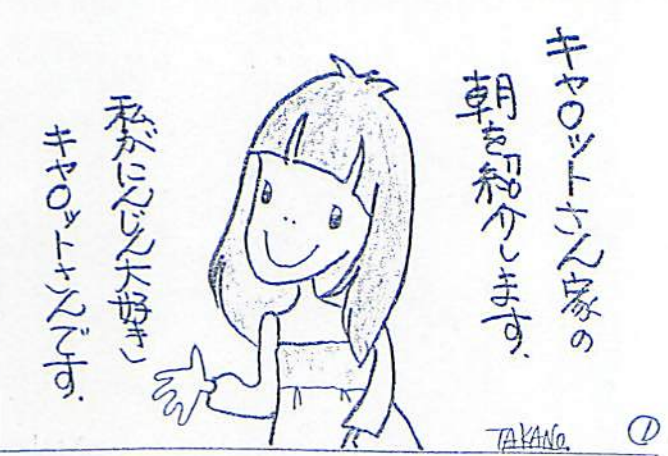 キャロットさん家の
朝を紹介します.
私がにんじん大好き
キャロットさんです.
TAKANO.
①